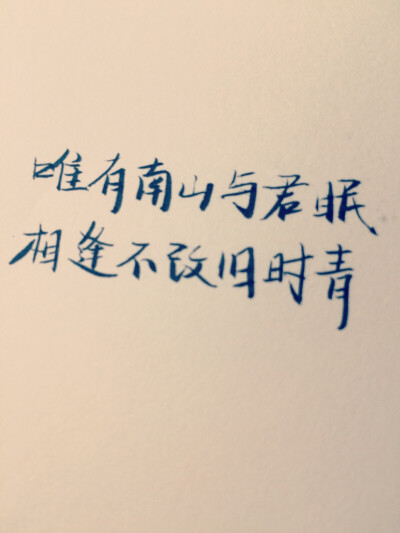 唯有南山与君眠
相逢不改旧时青